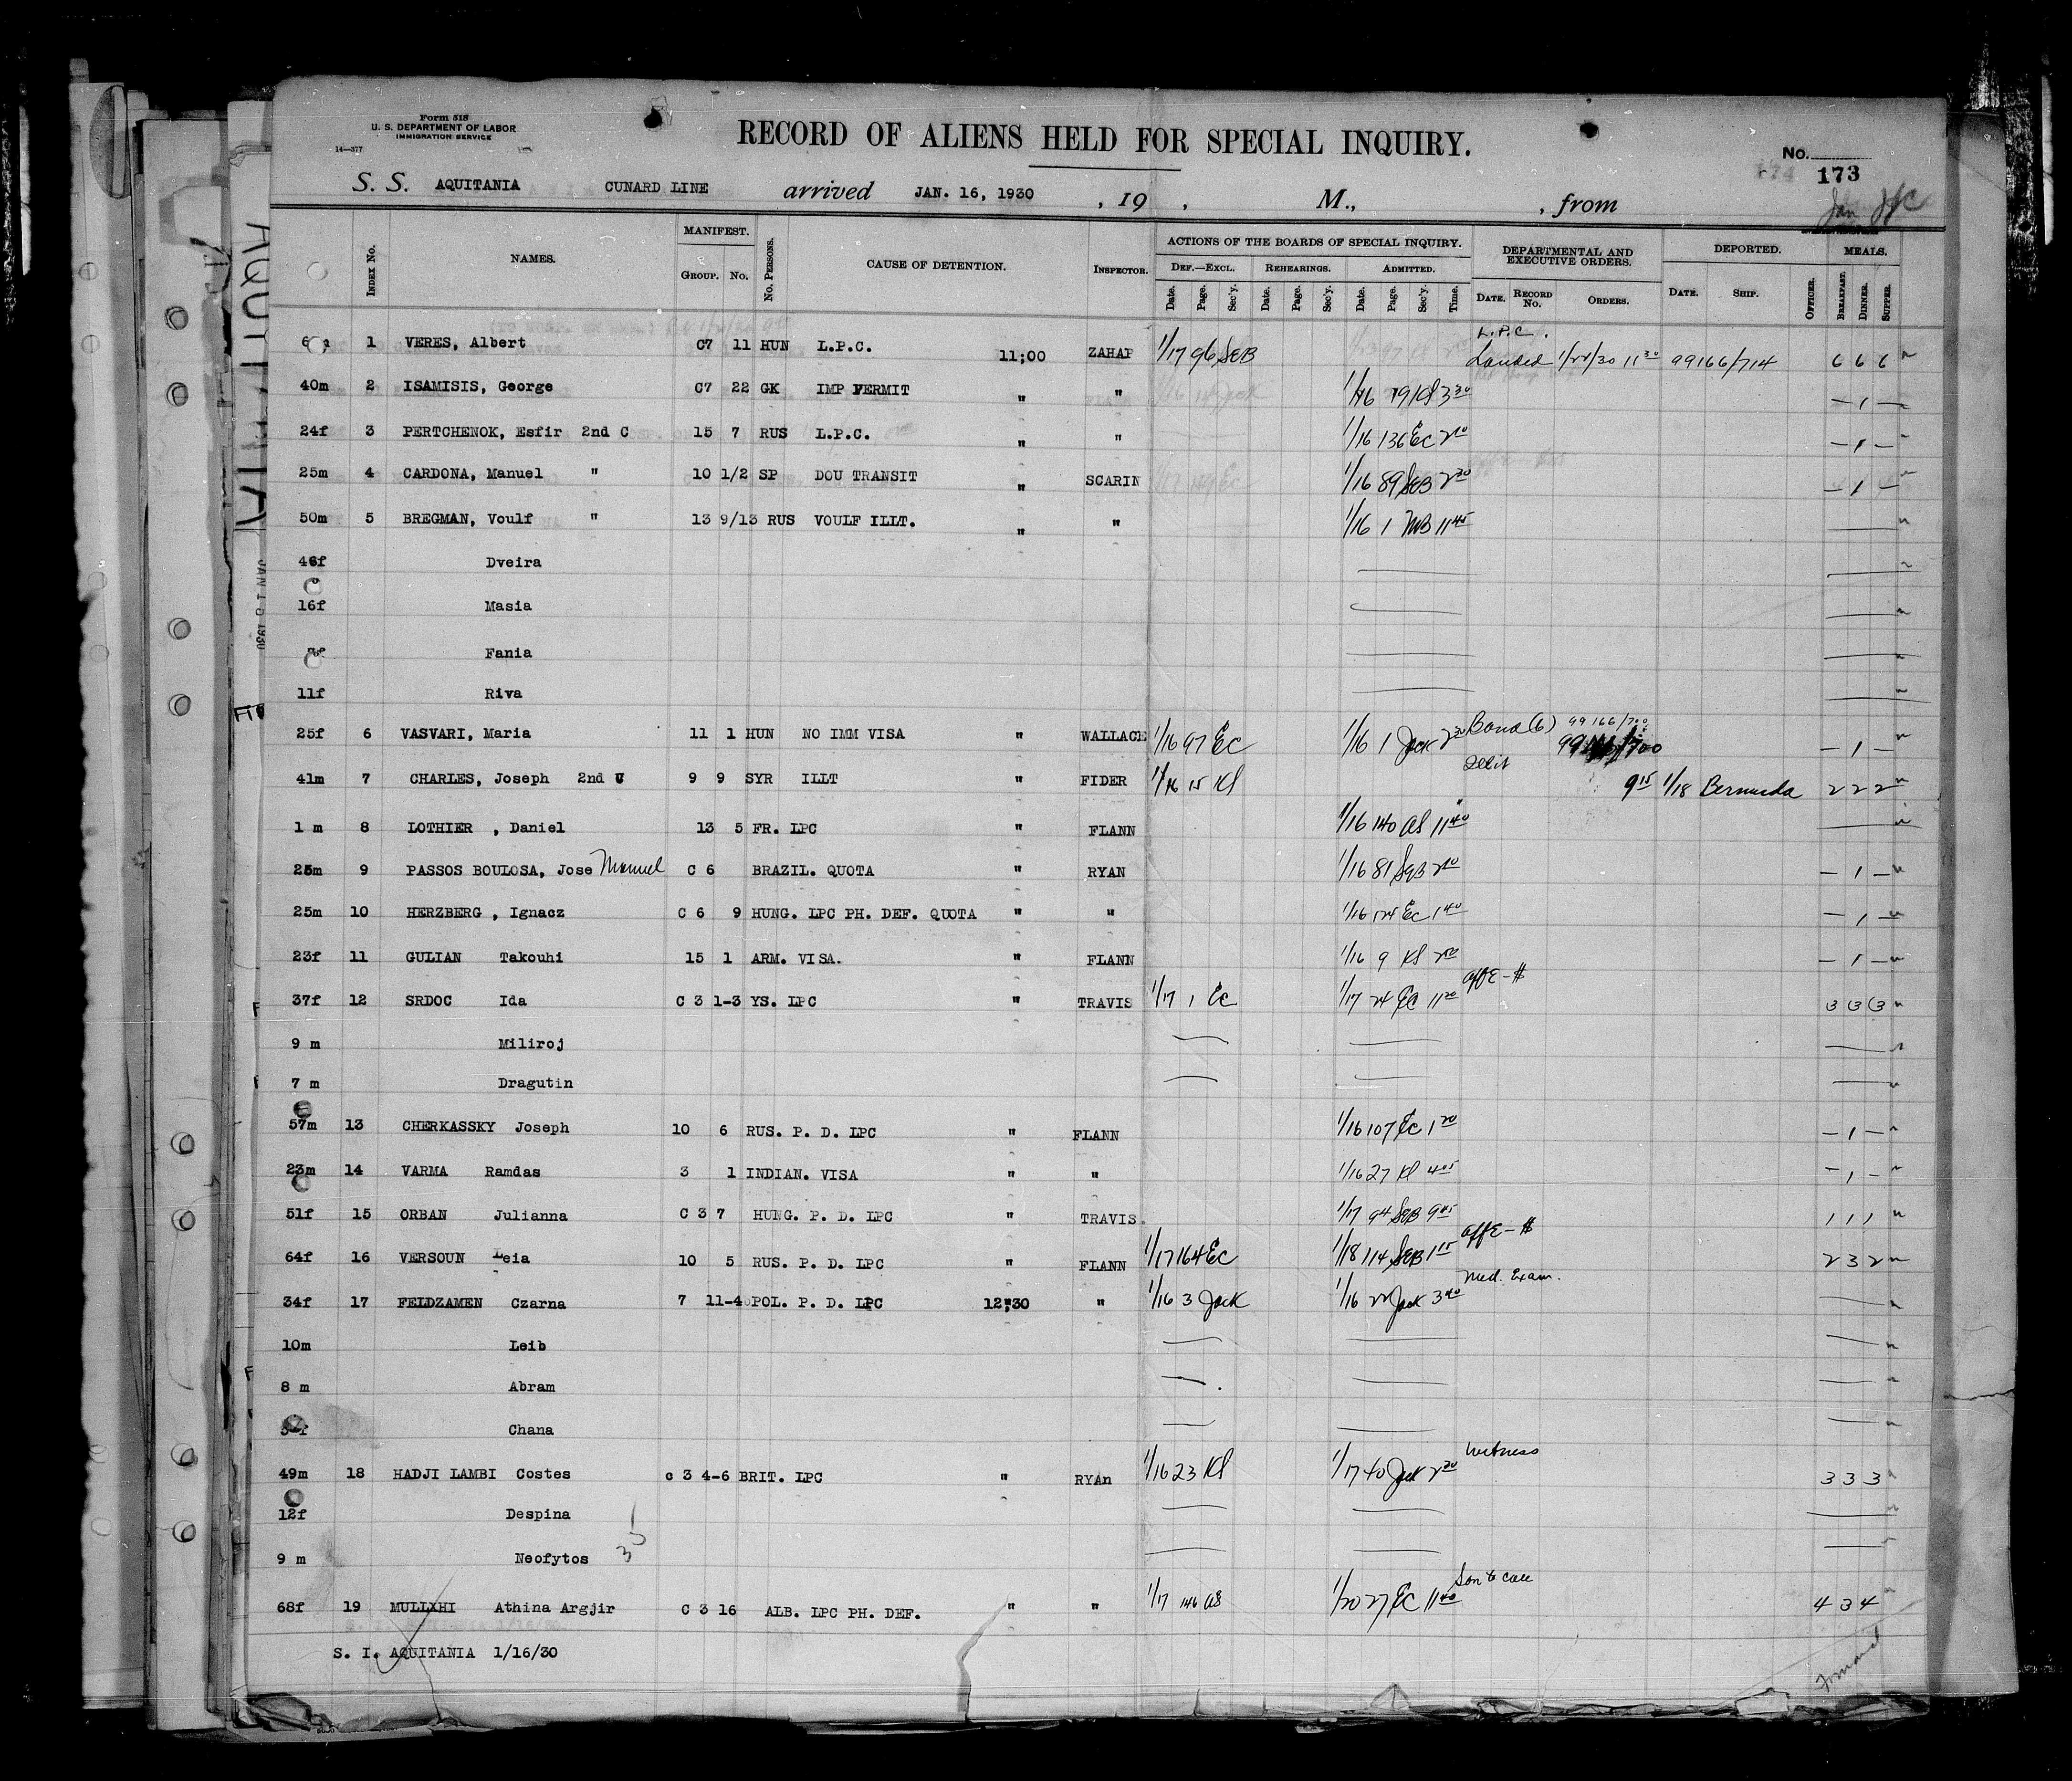 Form 518
U. S. DEPARTMENT OF LABOR
IMMIGRATION SERVICE
14—377
RECORD OF ALIENS HELD FOR SPECIAL INQUIRY.
No.
173
S. S. AQUITANIA CUNARD LINE arrived JAN. 16, 1930 , 19 , M., , from
AQUITANIA
JAN 16 1930
Index No. NAMES. MANIFEST. Group. No. No. Persons. CAUSE OF DETENTION. Inspector. ACTIONS OF THE BOARDS OF SPECIAL INQUIRY. DEPARTMENTAL AND EXECUTIVE ORDERS. DEPORTED. MEALS.
Def.—Excl. Rehearings. Admitted.
Date. Page. Sec'y. Date. Page. Sec'y. Date. Page. Sec'y. Time. Date. Record No. Orders. Date. Ship. Officer. Breakfast. Dinner. Supper.
L.P.C.
1 VERES, Albert C7 11 HUN L.P.C. 11;00 ZAHAP 1/17 96 SEB Landed 1/22/30 11 30 99166/714 6 6 6
40m 2 ISAMISIS, George C7 22 GK IMP PERMIT " " 1/16 79 KS 3 30 — 1 —
24f 3 PERTCHENOK, Esfir 2nd C 15 7 RUS L.P.C. " " 1/16 136 EC 2 10 — 1 —
25m 4 CARDONA, Manuel " 10 1/2 SP DOU TRANSIT " SCARIN 1/16 89 SEB 2 30 — 1 —
50m 5 BREGMAN, Voulf " 13 9/13 RUS VOULF ILLT. " " 1/16 1 MB 11 45
46f Dveira
16f Masia
Fania
11f Riva
25f 6 VASVARI, Maria 11 1 HUN NO IMM VISA " WALLACE 1/16 97 EC 1/16 1 Jack 2 30 Bond (6) 99166/700 — 1 —
41m 7 CHARLES, Joseph 2nd C 9 9 SYR ILLT " FIDER 1/16 15 KS 9 15 1/18 Bermuda 2 2 2
1 m 8 LOTHIER , Daniel 13 5 FR. LPC " FLANN 1/16 140 AS 11 40
25m 9 PASSOS BOULOSA, Jose Manuel C 6 BRAZIL. QUOTA " RYAN 1/16 81 SEB 2 10 — 1 —
25m 10 HERZBERG , Ignacz C 6 9 HUNG. LPC PH. DEF. QUOTA " " 1/16 124 EC 1 40 — 1 —
23f 11 GULIAN Takouhi 15 1 ARM. VISA. " FLANN 1/16 9 KS — 1 —
37f 12 SRDOC Ida C 3 1-3 YS. LPC " TRAVIS 1/17 1 EC 1/17 24 EC 11 20 aff E — $ 3 3 3
9 m Miliroj
7 m Dragutin
57m 13 CHERKASSKY Joseph 10 6 RUS. P. D. LPC " FLANN 1/16 107 EC 1 20 — 1 —
23m 14 VARMA Ramdas 3 1 INDIAN. VISA " " 1/16 27 KS 4 05 — 1 —
51f 15 ORBAN Julianna C 3 7 HUNG. P. D. LPC " TRAVIS. 1/17 94 SEB 9 45 1 1 1
64f 16 VERSOUN Leia 10 5 RUS. P. D. LPC " FLANN 1/17 164 EC 1/18 114 SEB 1 15 aff E — $ 2 3 2
34f 17 FELDZAMEN Czarna 7 11-4 POL. P. D. LPC 12;30 " 1/16 3 Jack 1/16 22 Jack 3 40 Med. Exam.
10m Leib
8 m Abram
Chana
49m 18 HADJI LAMBI Costes c 3 4-6 BRIT. LPC " RYAn 1/16 23 KS 1/17 40 Jack 2 30 Witness 3 3 3
12f Despina
9 m Neofytos 35
68f 19 MULIXHI Athina Argjir C 3 16 ALB. LPC PH. DEF. " " 1/17 146 AS 1/20 27 EC 11 40 Son to call 4 3 4
S. I. AQUITANIA 1/16/30